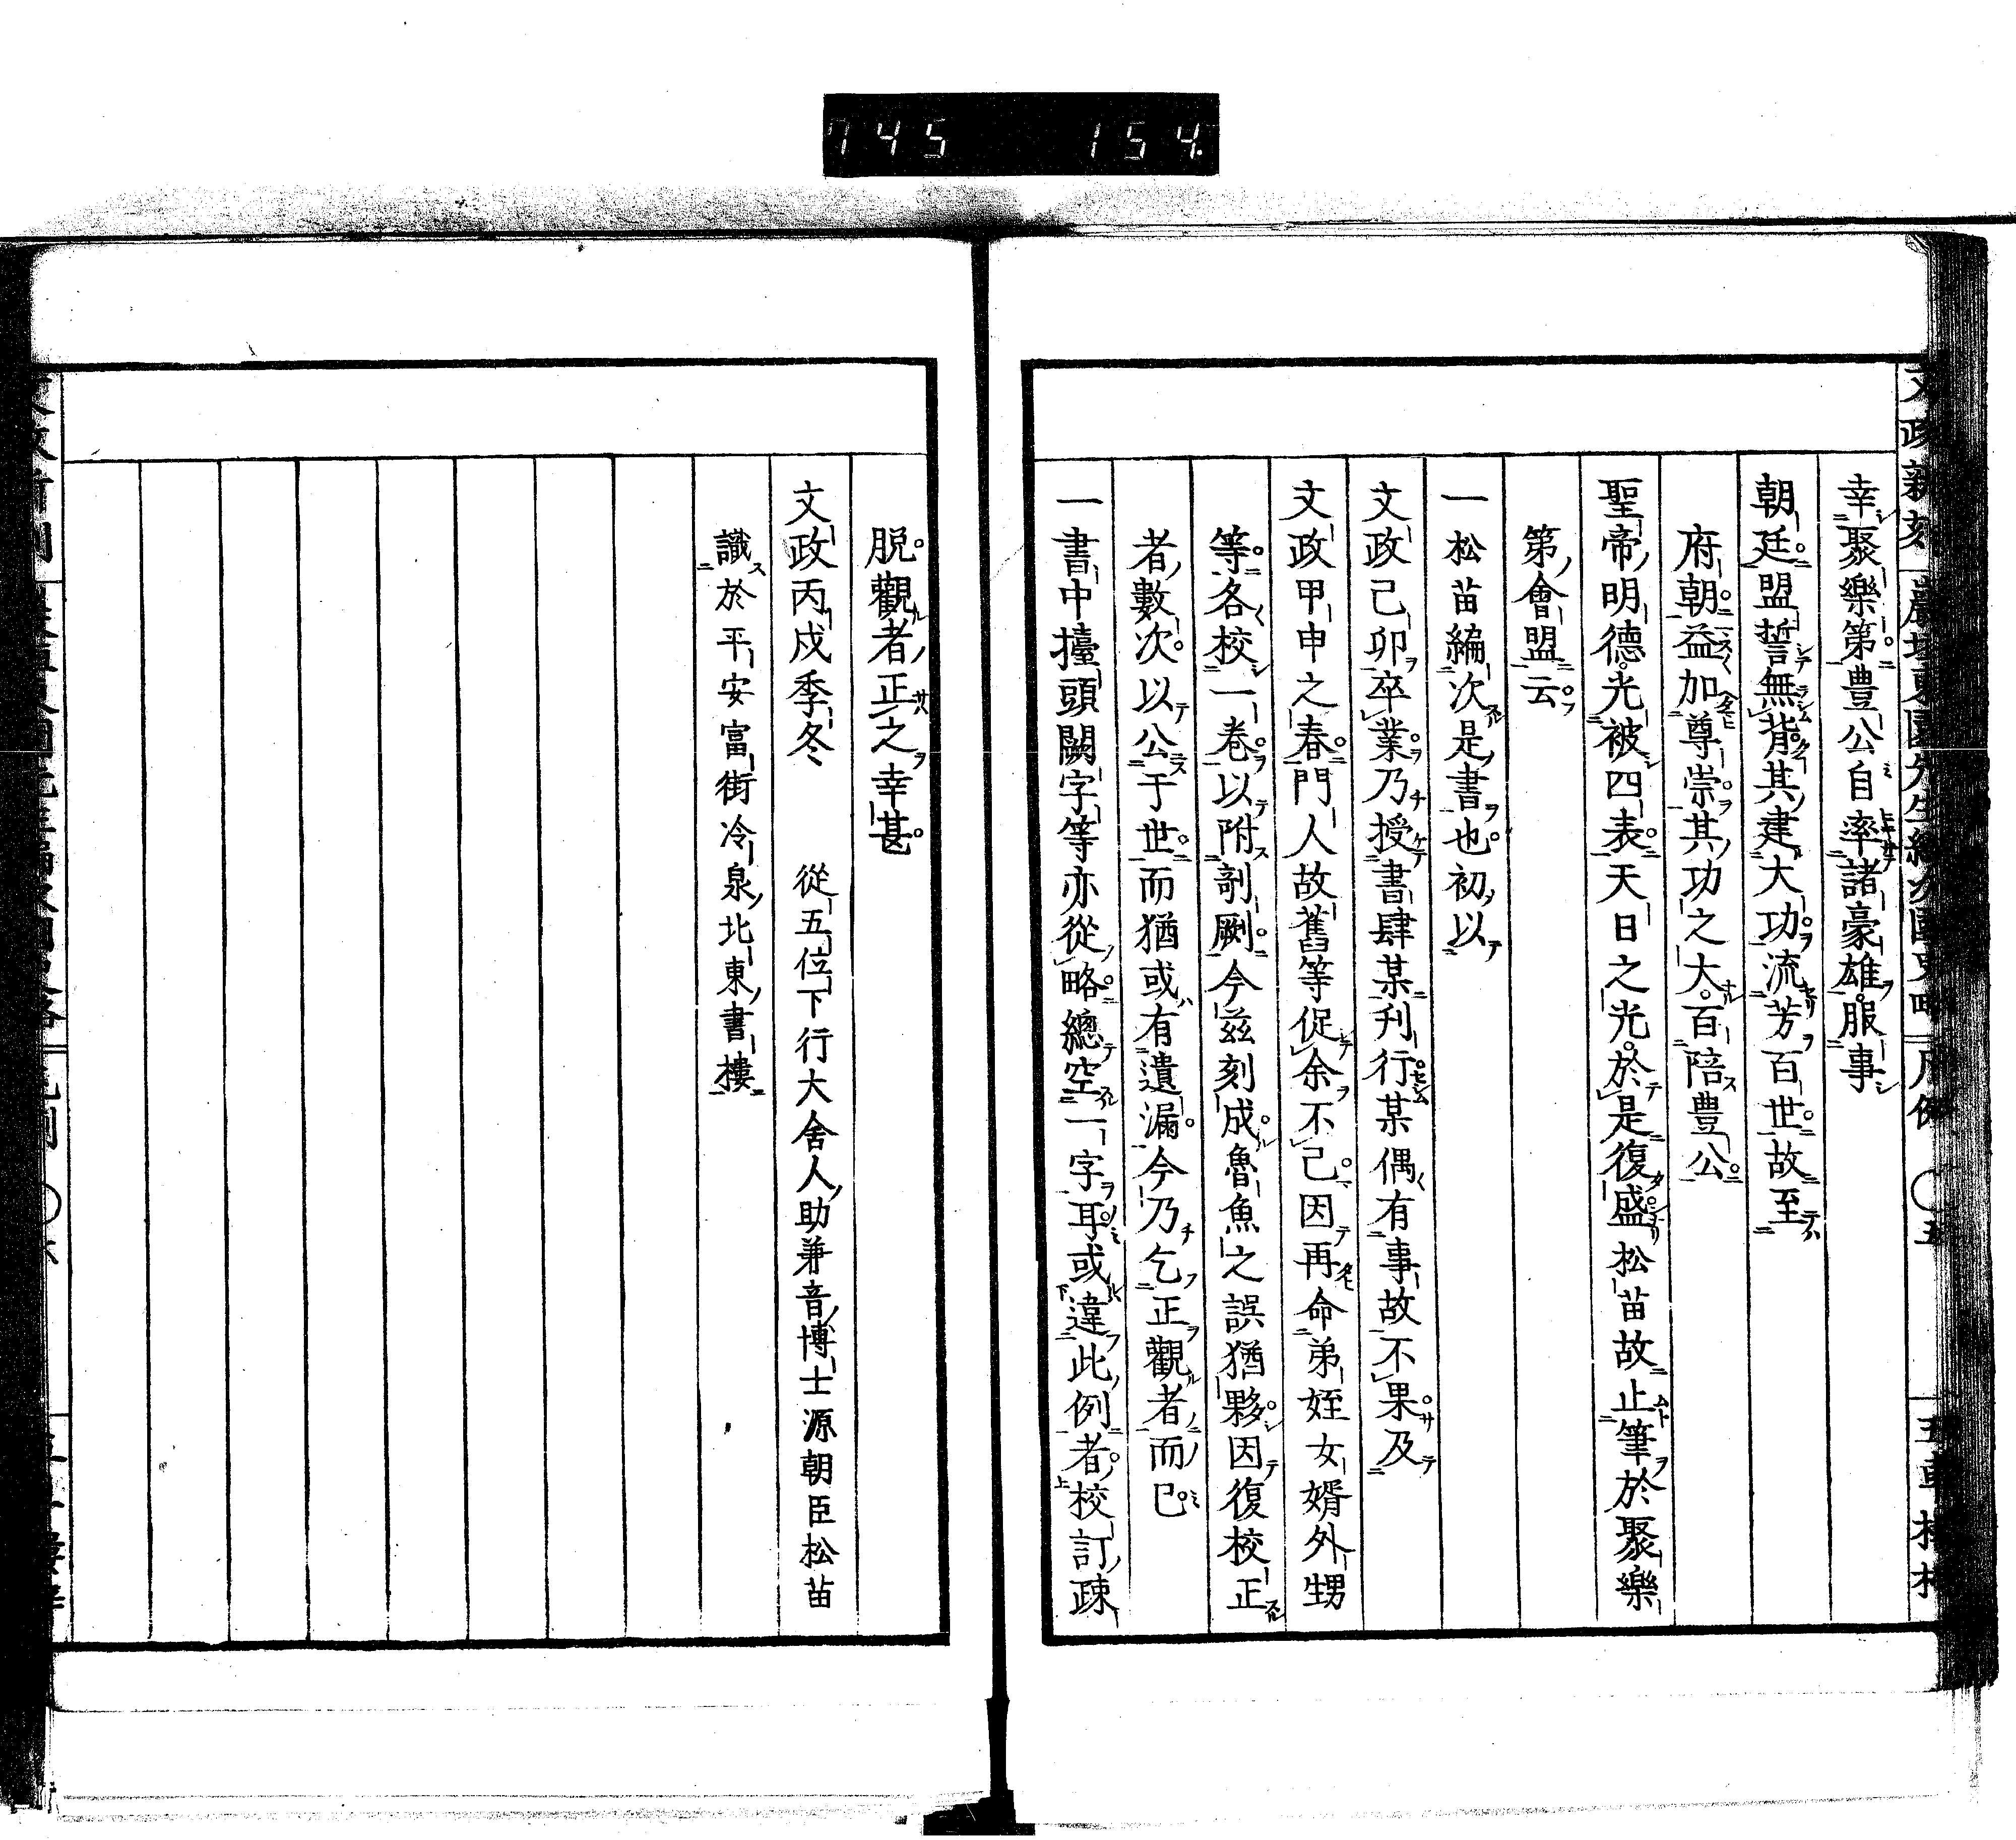 745 154
幸聚樂第豊公自率諸豪雄服事
朝廷盟誓無背其建大功流芳百世故至
府朝益加尊崇其功之大百陪豊公
聖帝明德光被四表天日之光於是復盛松苗故止筆於聚樂
第會盟云
一松苗編次是書也初以
文政己卯卒業乃授書肆某刋行某偶有事故不果及
文政甲申之春門人故舊等促余不已因再命弟姪女婿外甥
等各校一卷以附剞劂今茲刻成魯魚之誤猶夥因復校正
者數次以公于世而猶或有遺漏今乃乞正觀者而已
一書中擡頭闕字等亦從略總空一字耳或違此例者校訂疎
脱觀者正之幸甚
文政丙戍季冬 從五位下行大舍人助兼音博士源朝臣松苗
識於平安富街冷泉北東書樓